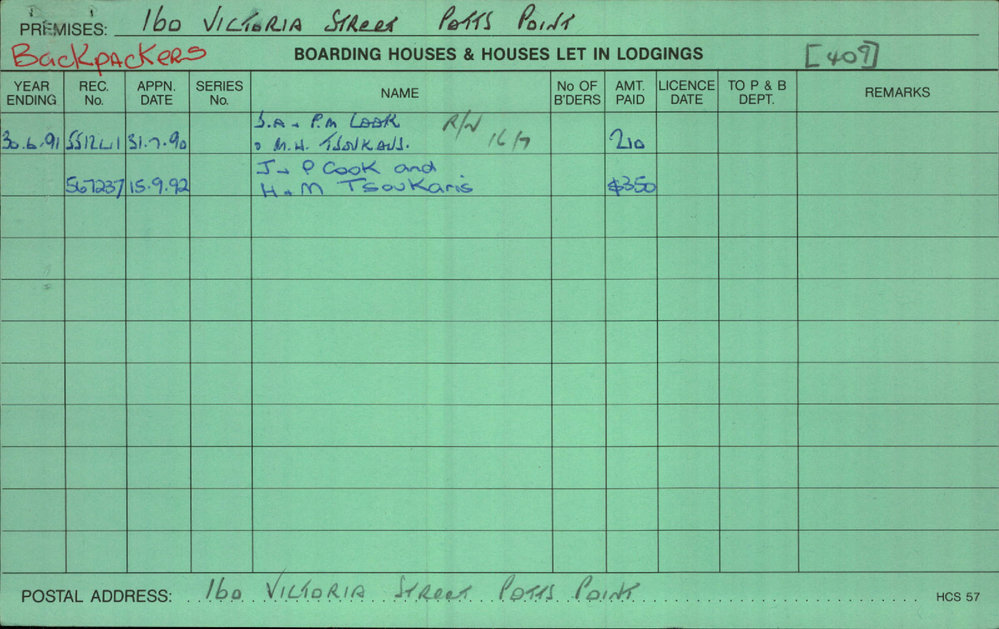 PREMISES: 160 VICTORIA STREET POTTS POINT
BackPACKERS BOARDING HOUSES & HOUSES LET IN LODGINGS [409]
YEAR ENDING REC. No. APPN. DATE SERIES No. NAME No OF B'DERS AMT. PAID LICENCE DATE TO P & B DEPT. REMARKS
J.A. & P.M COOK R/N 16/7
30.6.91 551241 31.7.90 & M.H. TSOUKARIS. 210
J & P Cook and
567237 15.9.92 H & M Tsoukaris $350
POSTAL ADDRESS: 160 VICTORIA STREET POTTS POINT HCS 57